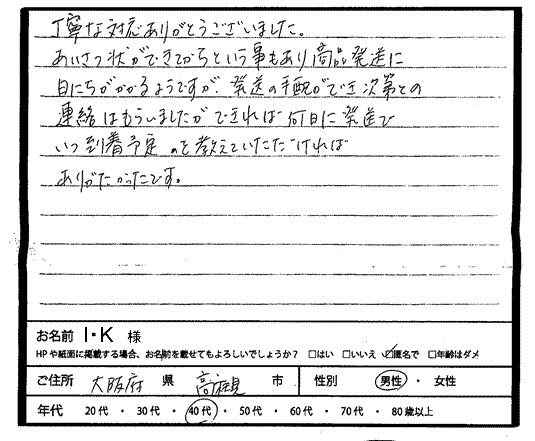 丁寧な対応ありがとうございました。
あいさつ状ができてからという事もあり商品発送に
日にちがかかるようですが、発送の手配ができ次第との
連絡はもらいましたができれば何日に発送で
いつ到着予定のを教えていただければ
ありがたかったです。
お名前 I・K 様
HPや紙面に掲載する場合、お名前を載せてもよろしいでしょうか? □はい □いいえ ☑匿名で □年齢はダメ
ご住所 大阪府 県 高槻 市 性別 男性 ・ 女性
年代 20代 ・ 30代 ・ 40代 ・ 50代 ・ 60代 ・ 70代 ・ 80歳以上